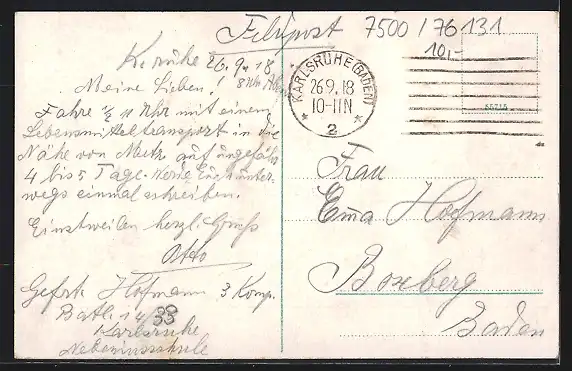 Feldpost
7500/76131
10,-
K. ruhe 26.9.18
8 Uhr Abends
Meine Lieben!
Fahre ½ 11 Uhr mit einem
Lebensmitteltransport in die
Nähe von Metz auf ungefähr
4 bis 5 Tage. Werde Euch unter-
wegs einmal schreiben.
Einstweilen herzl. Gruß
Otto
Gefrt. Hofmann 3 Komp.
Batl. 14
Karlsruhe
Nebeniusschule
KARLSRUHE (BADEN)
26.9.18
10-11N
* 2 *
55715
Frau
Emma Hofmann
Boxberg
Baden